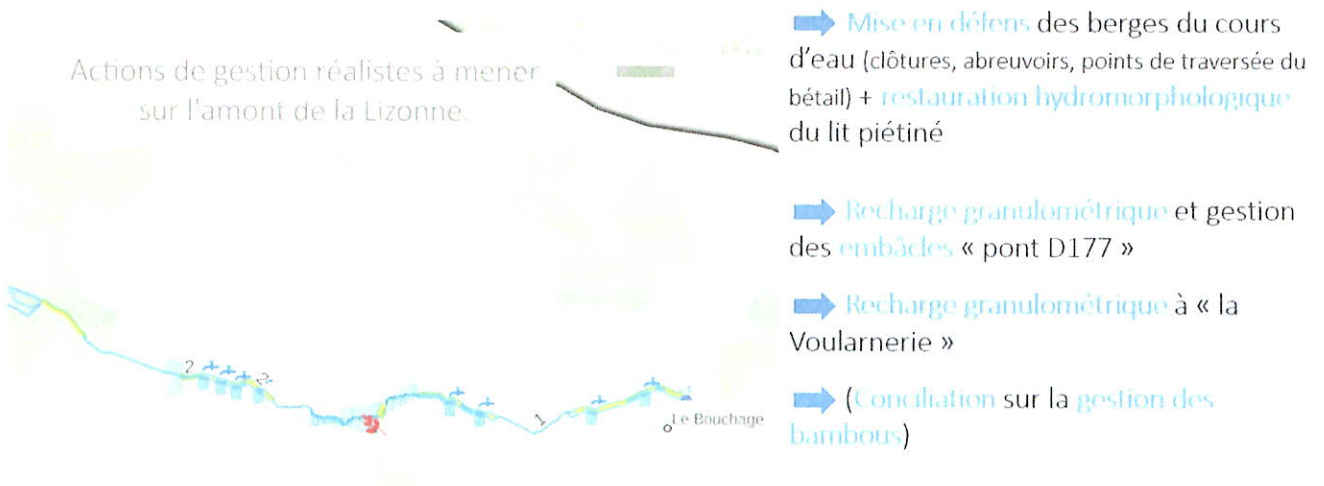 Actions de gestion réalistes à mener
sur l'amont de la Lizonne.
Mise en défens des berges du cours
d'eau (clôtures, abreuvoirs, points de traversée du
bétail) + restauration hydromorphologique
du lit piétiné
Recharge granulométrique et gestion
des embâcles « pont D177 »
Recharge granulométrique à « la
Voularnerie »
(Conciliation sur la gestion des
bambous)
2
2
1
Le Bouchage